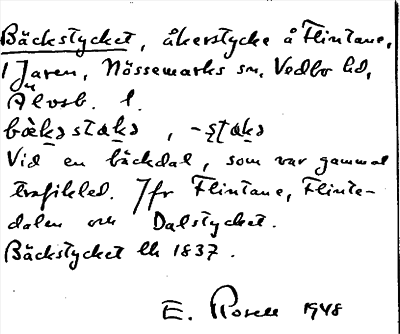 Bäckstycket, åkerstycke å Flintane,
1 Jaren, Nössemarks sn, Vedbo hd,
Älvsb. l.
bæ̀kəstakə, -stakə
Vid en bäckdal, som var gammal
trafikled. Jfr Flintane, Flinte-
dalen och Dalstycket.
Bäckstycket lk 1837.
E. Rosell 1948